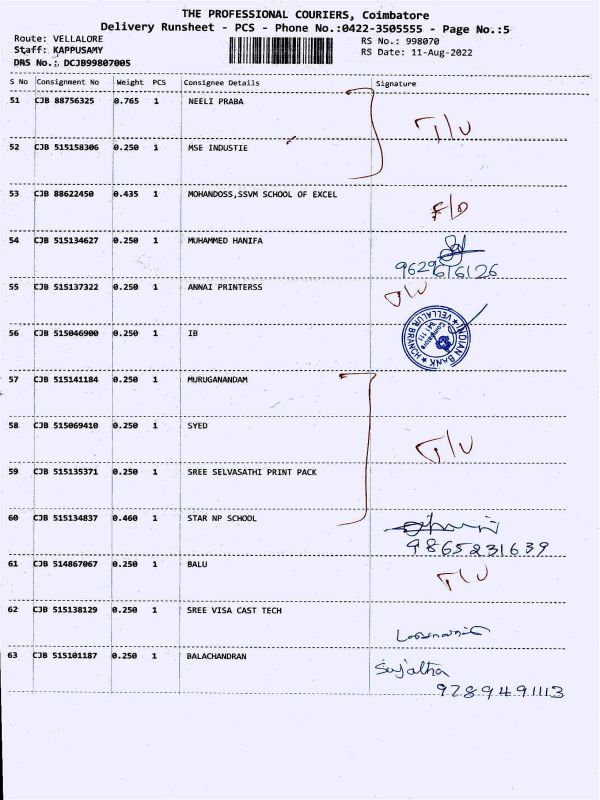 THE PROFESSIONAL COURIERS, Coimbatore
Delivery Runsheet - PCS - Phone No.:0422-3505555 - Page No.:5
Route: VELLALORE
RS No.: 998070
Staff: KAPPUSAMY
RS Date: 11-Aug-2022
DRS No.: DCJB99807005
S No Consignment No Weight PCS Consignee Details Signature
51 CJB 88756325 0.765 1 NEELI PRABA
T/U
52 CJB 515158306 0.250 1 MSE INDUSTIE
53 CJB 88622450 0.435 1 MOHANDOSS,SSVM SCHOOL OF EXCEL
F/D
54 CJB 515134627 0.250 1 MUHAMMED HANIFA
9629616126
55 CJB 515137322 0.250 1 ANNAI PRINTERSS
56 CJB 515046900 0.250 1 IB
INDIAN BANK ★ VELLALUR BRANCH
57 CJB 515141184 0.250 1 MURUGANANDAM
58 CJB 515069410 0.250 1 SYED
T/U
59 CJB 515135371 0.250 1 SREE SELVASATHI PRINT PACK
60 CJB 515134837 0.460 1 STAR NP SCHOOL
9865231639
61 CJB 514867067 0.250 1 BALU
T/U
62 CJB 515138129 0.250 1 SREE VISA CAST TECH
63 CJB 515101187 0.250 1 BALACHANDRAN
Sujatha
9789491113